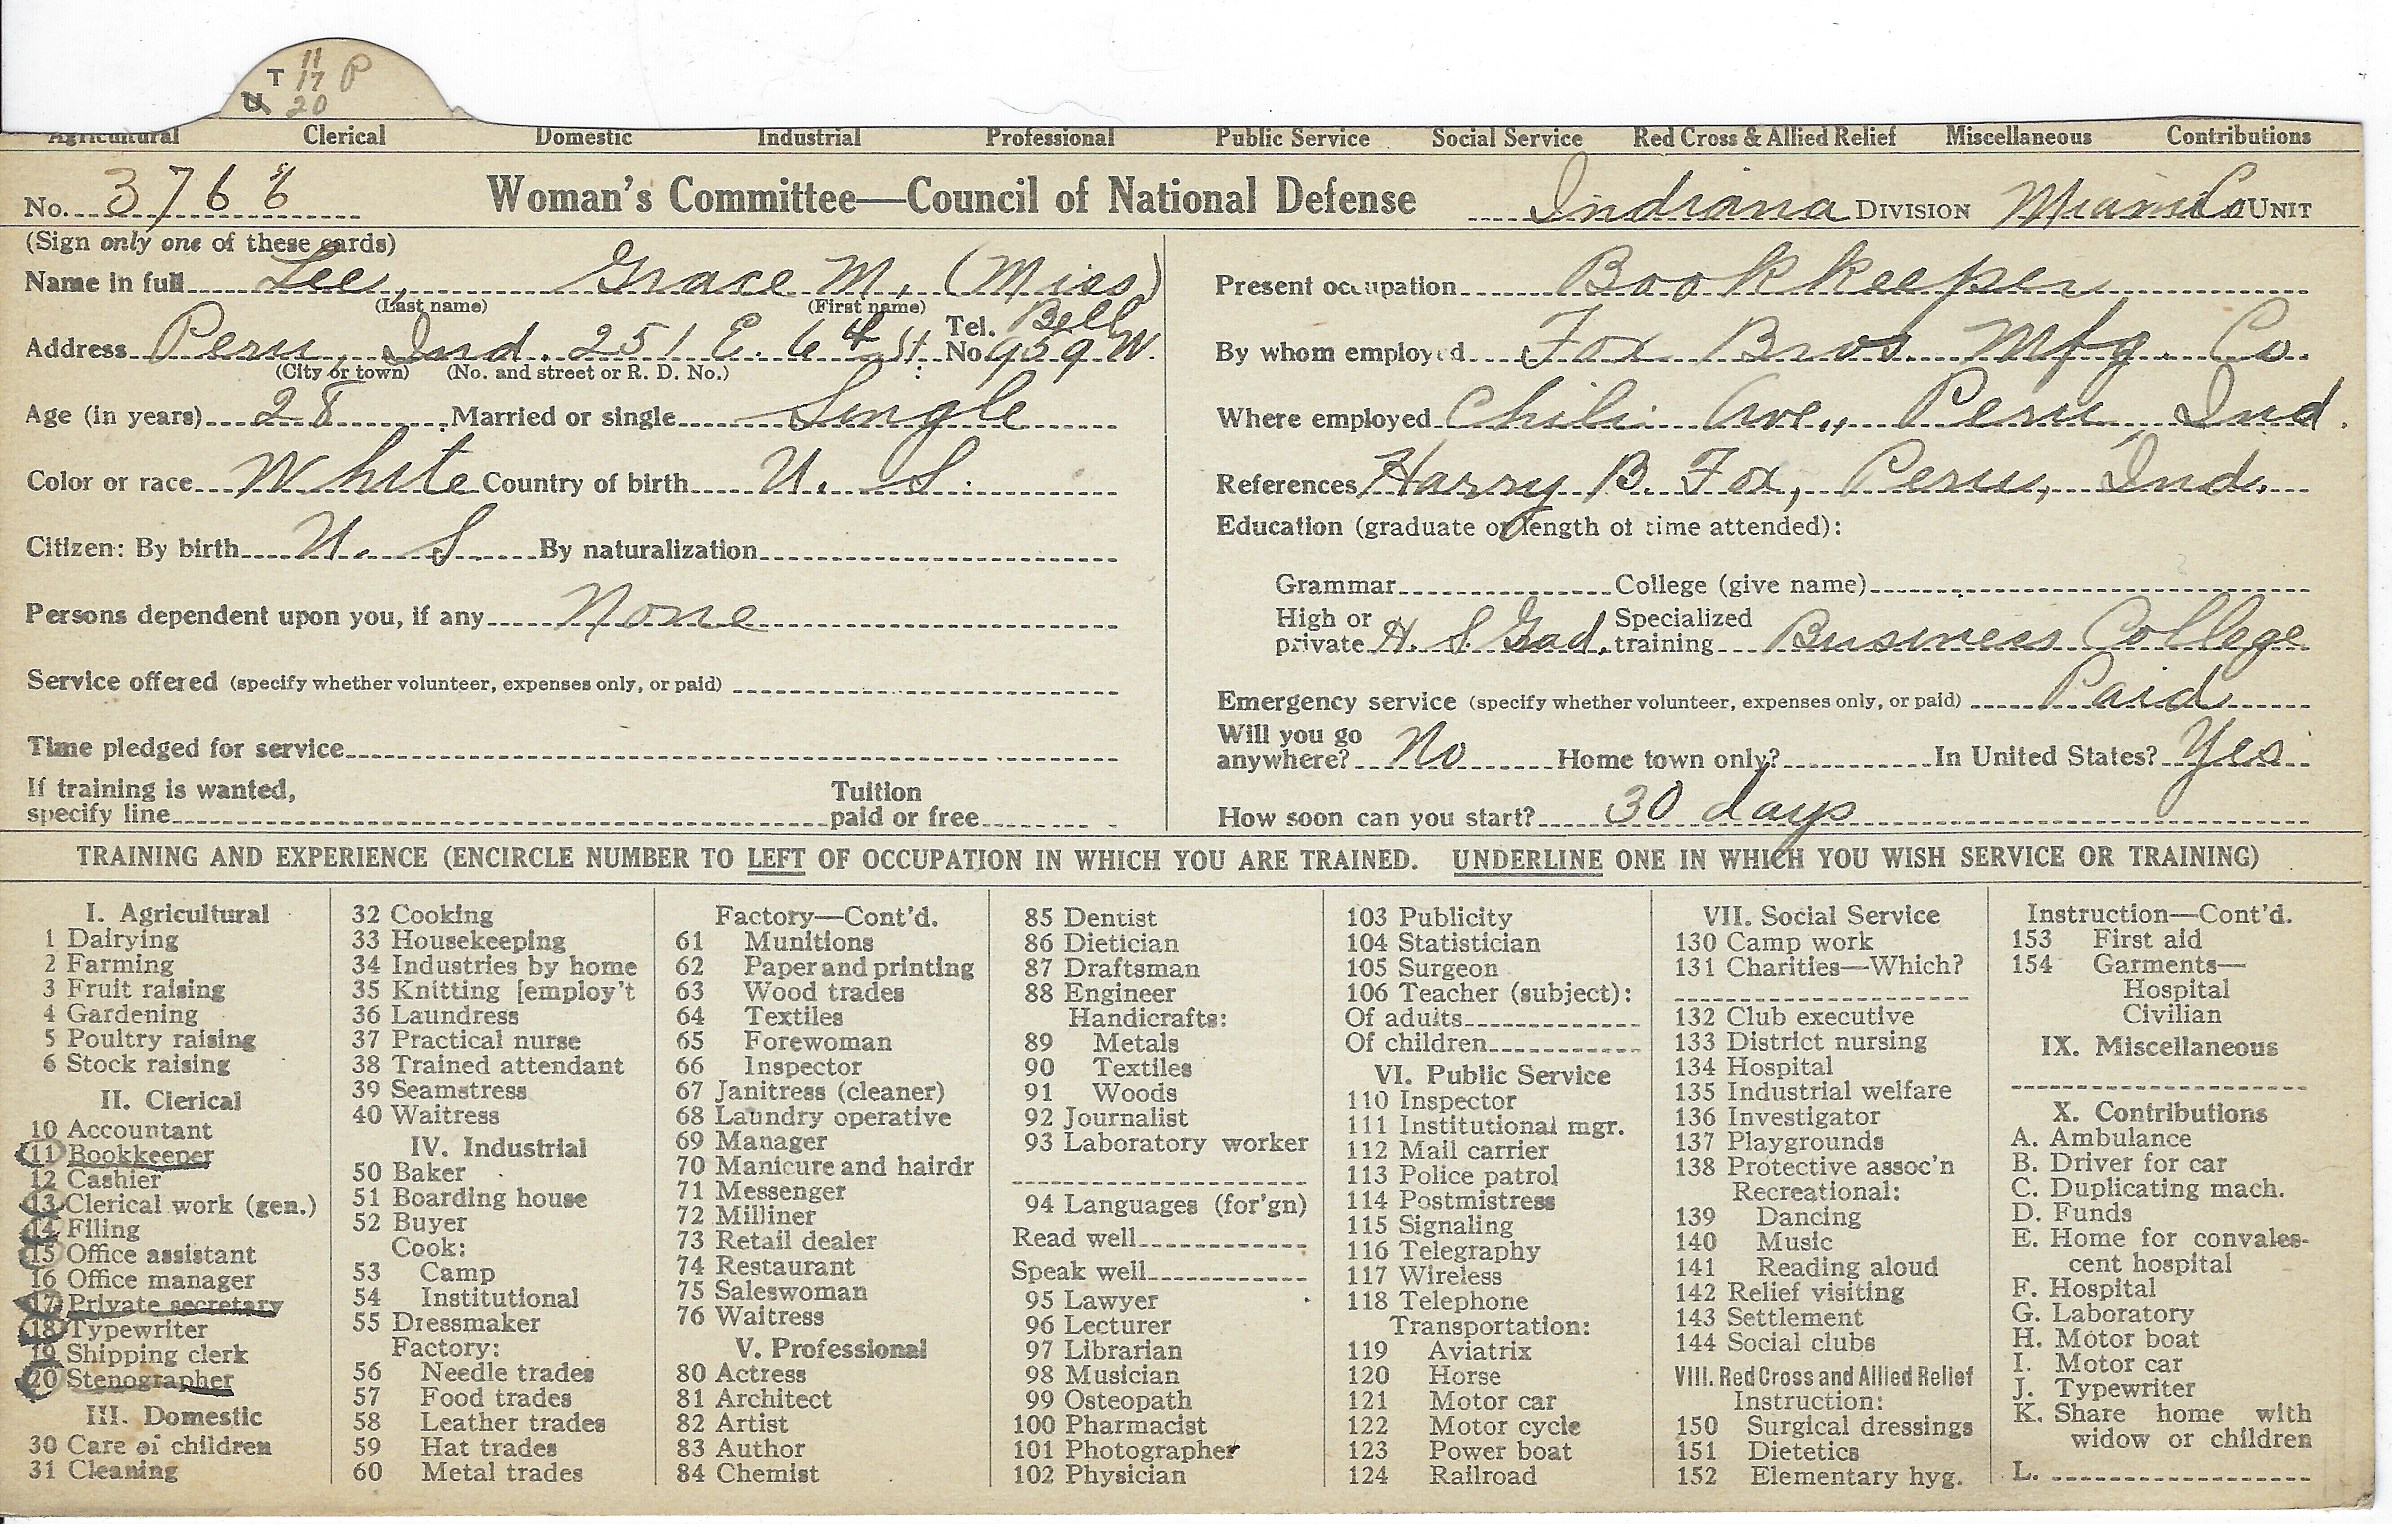 T 11 17 20 P
U
Agricultural Clerical Domestic Industrial Professional Public Service Social Service Red Cross & Allied Relief Miscellaneous Contributions
No. 3768 Woman's Committee—Council of National Defense Indiana DIVISION Miami Co UNIT
(Sign only one of these cards)
Name in full Lee, Grace M. (Miss)
(Last name) (First name)
Address Peru, Ind. 251 E. 6th St. Tel. No. Bell 959 W.
(City or town) (No. and street or R. D. No.)
Age (in years) 28 Married or single Single
Color or race White Country of birth U. S.
Citizen: By birth U. S By naturalization
Persons dependent upon you, if any None
Service offered (specify whether volunteer, expenses only, or paid)
Time pledged for service
If training is wanted,
specify line Tuition paid or free
Present occupation Bookkeeper
By whom employed Fox Bros. Mfg. Co.
Where employed Chili Ave., Peru Ind.
References Harry B. Fox, Peru, Ind.
Education (graduate or length of time attended):
Grammar College (give name)
High or private H. S. Grad. Specialized training Business College
Emergency service (specify whether volunteer, expenses only, or paid) Paid
Will you go anywhere? No Home town only? In United States? Yes
How soon can you start? 30 days
TRAINING AND EXPERIENCE (ENCIRCLE NUMBER TO LEFT OF OCCUPATION IN WHICH YOU ARE TRAINED. UNDERLINE ONE IN WHICH YOU WISH SERVICE OR TRAINING)
I. Agricultural
1 Dairying
2 Farming
3 Fruit raising
4 Gardening
5 Poultry raising
6 Stock raising
II. Clerical
10 Accountant
11 Bookkeeper
12 Cashier
13 Clerical work (gen.)
14 Filing
15 Office assistant
16 Office manager
17 Private secretary
18 Typewriter
19 Shipping clerk
20 Stenographer
III. Domestic
30 Care of children
31 Cleaning
32 Cooking
33 Housekeeping
34 Industries by home
35 Knitting [employ't
36 Laundress
37 Practical nurse
38 Trained attendant
39 Seamstress
40 Waitress
IV. Industrial
50 Baker
51 Boarding house
52 Buyer
Cook:
53 Camp
54 Institutional
55 Dressmaker
Factory:
56 Needle trades
57 Food trades
58 Leather trades
59 Hat trades
60 Metal trades
Factory—Cont'd.
61 Munitions
62 Paper and printing
63 Wood trades
64 Textiles
65 Forewoman
66 Inspector
67 Janitress (cleaner)
68 Laundry operative
69 Manager
70 Manicure and hairdr
71 Messenger
72 Milliner
73 Retail dealer
74 Restaurant
75 Saleswoman
76 Waitress
V. Professional
80 Actress
81 Architect
82 Artist
83 Author
84 Chemist
85 Dentist
86 Dietician
87 Draftsman
88 Engineer
Handicrafts:
89 Metals
90 Textiles
91 Woods
92 Journalist
93 Laboratory worker
94 Languages (for'gn)
Read well
Speak well
95 Lawyer
96 Lecturer
97 Librarian
98 Musician
99 Osteopath
100 Pharmacist
101 Photographer
102 Physician
103 Publicity
104 Statistician
105 Surgeon
106 Teacher (subject):
Of adults
Of children
VI. Public Service
110 Inspector
111 Institutional mgr.
112 Mail carrier
113 Police patrol
114 Postmistress
115 Signaling
116 Telegraphy
117 Wireless
118 Telephone
Transportation:
119 Aviatrix
120 Horse
121 Motor car
122 Motor cycle
123 Power boat
124 Railroad
VII. Social Service
130 Camp work
131 Charities—Which?
132 Club executive
133 District nursing
134 Hospital
135 Industrial welfare
136 Investigator
137 Playgrounds
138 Protective assoc'n
Recreational:
139 Dancing
140 Music
141 Reading aloud
142 Relief visiting
143 Settlement
144 Social clubs
VIII. Red Cross and Allied Relief
Instruction:
150 Surgical dressings
151 Dietetics
152 Elementary hyg.
Instruction—Cont'd.
153 First aid
154 Garments—
Hospital
Civilian
IX. Miscellaneous
X. Contributions
A. Ambulance
B. Driver for car
C. Duplicating mach.
D. Funds
E. Home for convales-
cent hospital
F. Hospital
G. Laboratory
H. Motor boat
I. Motor car
J. Typewriter
K. Share home with
widow or children
L.